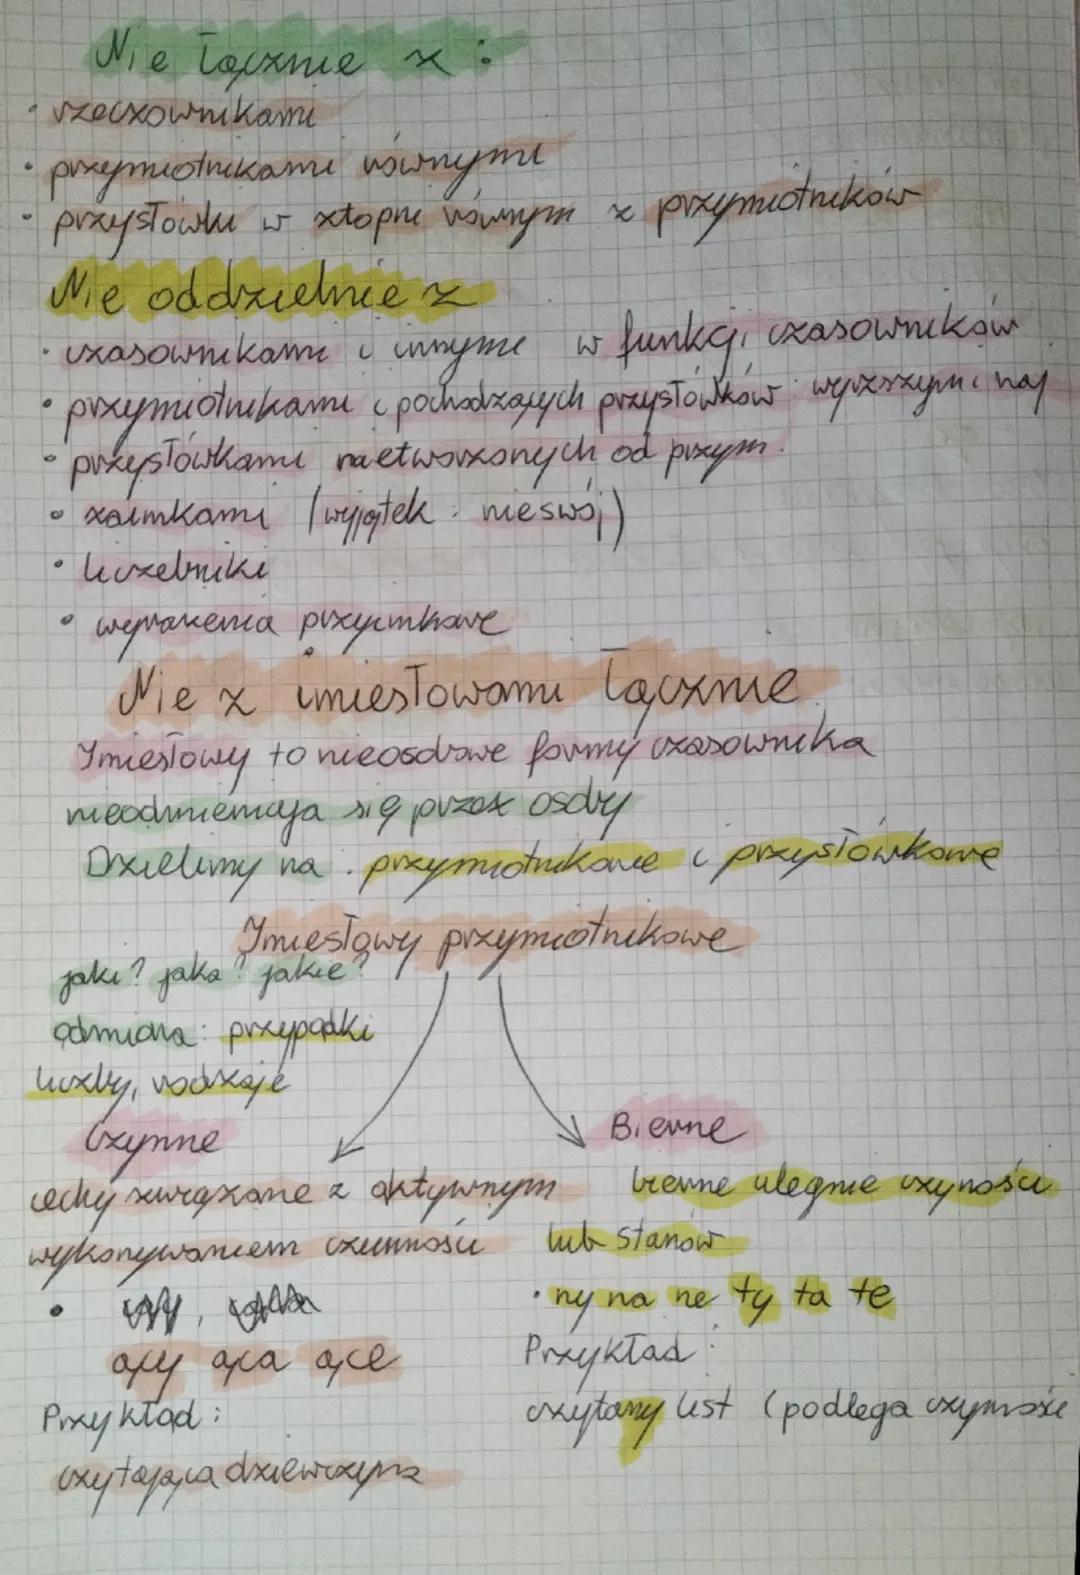 Nie łącznie z:
• rzeczownikami
• przymiotnikami równymi
• przysłówki w stopni równym z przymiotników
Nie oddzielnie z
• czasownikami i innymi w funkcji czasowników
• przymiotnikami i pochodzących przysłówków wyższym i naj
• przysłówkami nietworzonych od przym.
• zaimkami (wyjątek: nieswój)
• liczebniki
• wyrażenia przyimkowe
Nie z imiesłowami łącznie.
Imiesłowy to nieosobowe formy czasownika
nieodmieniają się przez osoby
Dzielimy na: przymiotnikowe i przysłówkowe
Imiesłowy przymiotnikowe
jaki? jaka? jakie?
odmiana: przypadki
liczby, rodzaje
Czynne
cechy związane z aktywnym
wykonywaniem czynności
•
ący ąca ące
Przykład:
czytająca dziewczyna
Bierne
bierne uległnie czyności
lub stanów
• ny na ne ty ta te
Przykład:
czytany list (podlega czynności